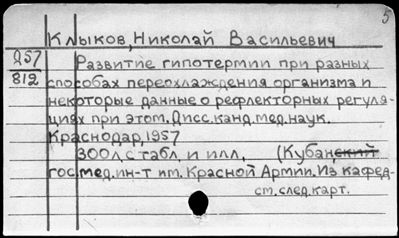 5
Клыков, Николай Васильевич
Д57
812
Развитие гипотермии при разных
способах переохлаждения организма и
некоторые данные о рефлекторных регуля-
циях при этом. Дисс. канд. мед. наук.
Краснодар, 1957
300 л. с табл. и илл. (Кубанский
гос. мед. ин-т им. Красной Армии. Из кафед-
см. след. карт.